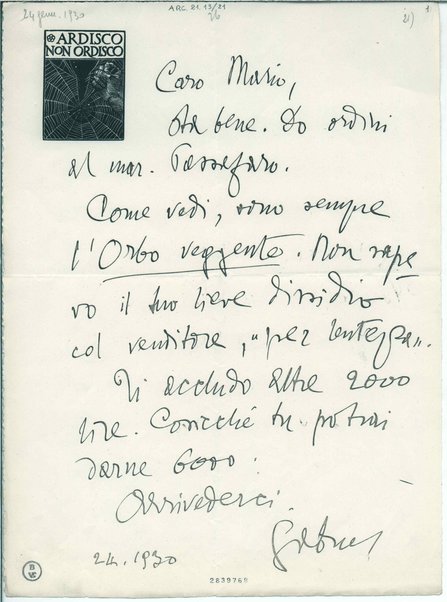 24 genn. 1930
ARC. 21. 13/21
26
21)
1
ARDISCO
NON ORDISCO
Caro Mario,
sta bene. Do ordini
al mar. Passafaro.
Come vedi, sono sempre
l'Orbo veggente. Non sape
vo il tuo lieve dissidio
col venditore, "per lentezza".
Ti accludo altre 2000
lire. Cosicché tu potrai
darne 6000.
Arrivederci.
Gabriel
24. 1930
2839768